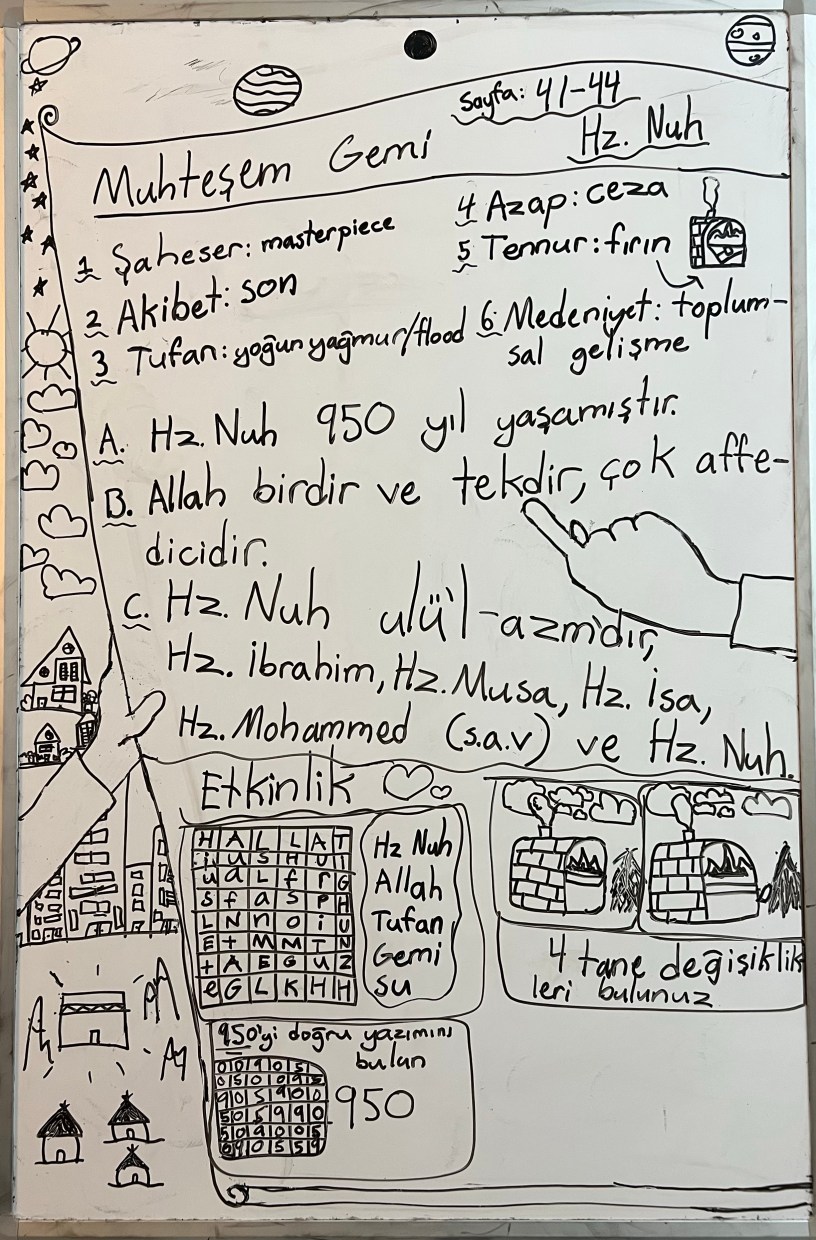 Sayfa: 41-44
Muhteşem Gemi
Hz. Nuh
1 Şaheser: masterpiece
2 Akibet: son
3 Tufan: yoğun yağmur/flood
4 Azap: ceza
5 Tennur: fırın
6 Medeniyet: toplum-
sal gelişme
A. Hz. Nuh 950 yıl yaşamıştır.
B. Allah birdir ve tekdir, çok affe-
dicidir.
C. Hz. Nuh ulü'l-azmdır,
Hz. İbrahim, Hz. Musa, Hz. İsa,
Hz. Mohammed (s.a.v) ve Hz. Nuh.
Etkinlik
H A L L A T
i u s H U I
u a L f r G
s f a s P H
L N n o i U
E t M M T N
t A E G U Z
e G L K H H
Hz Nuh
Allah
Tufan
Gemi
Su
4 tane değişiklik
leri bulunuz
950'yi doğru yazımını
bulun
950